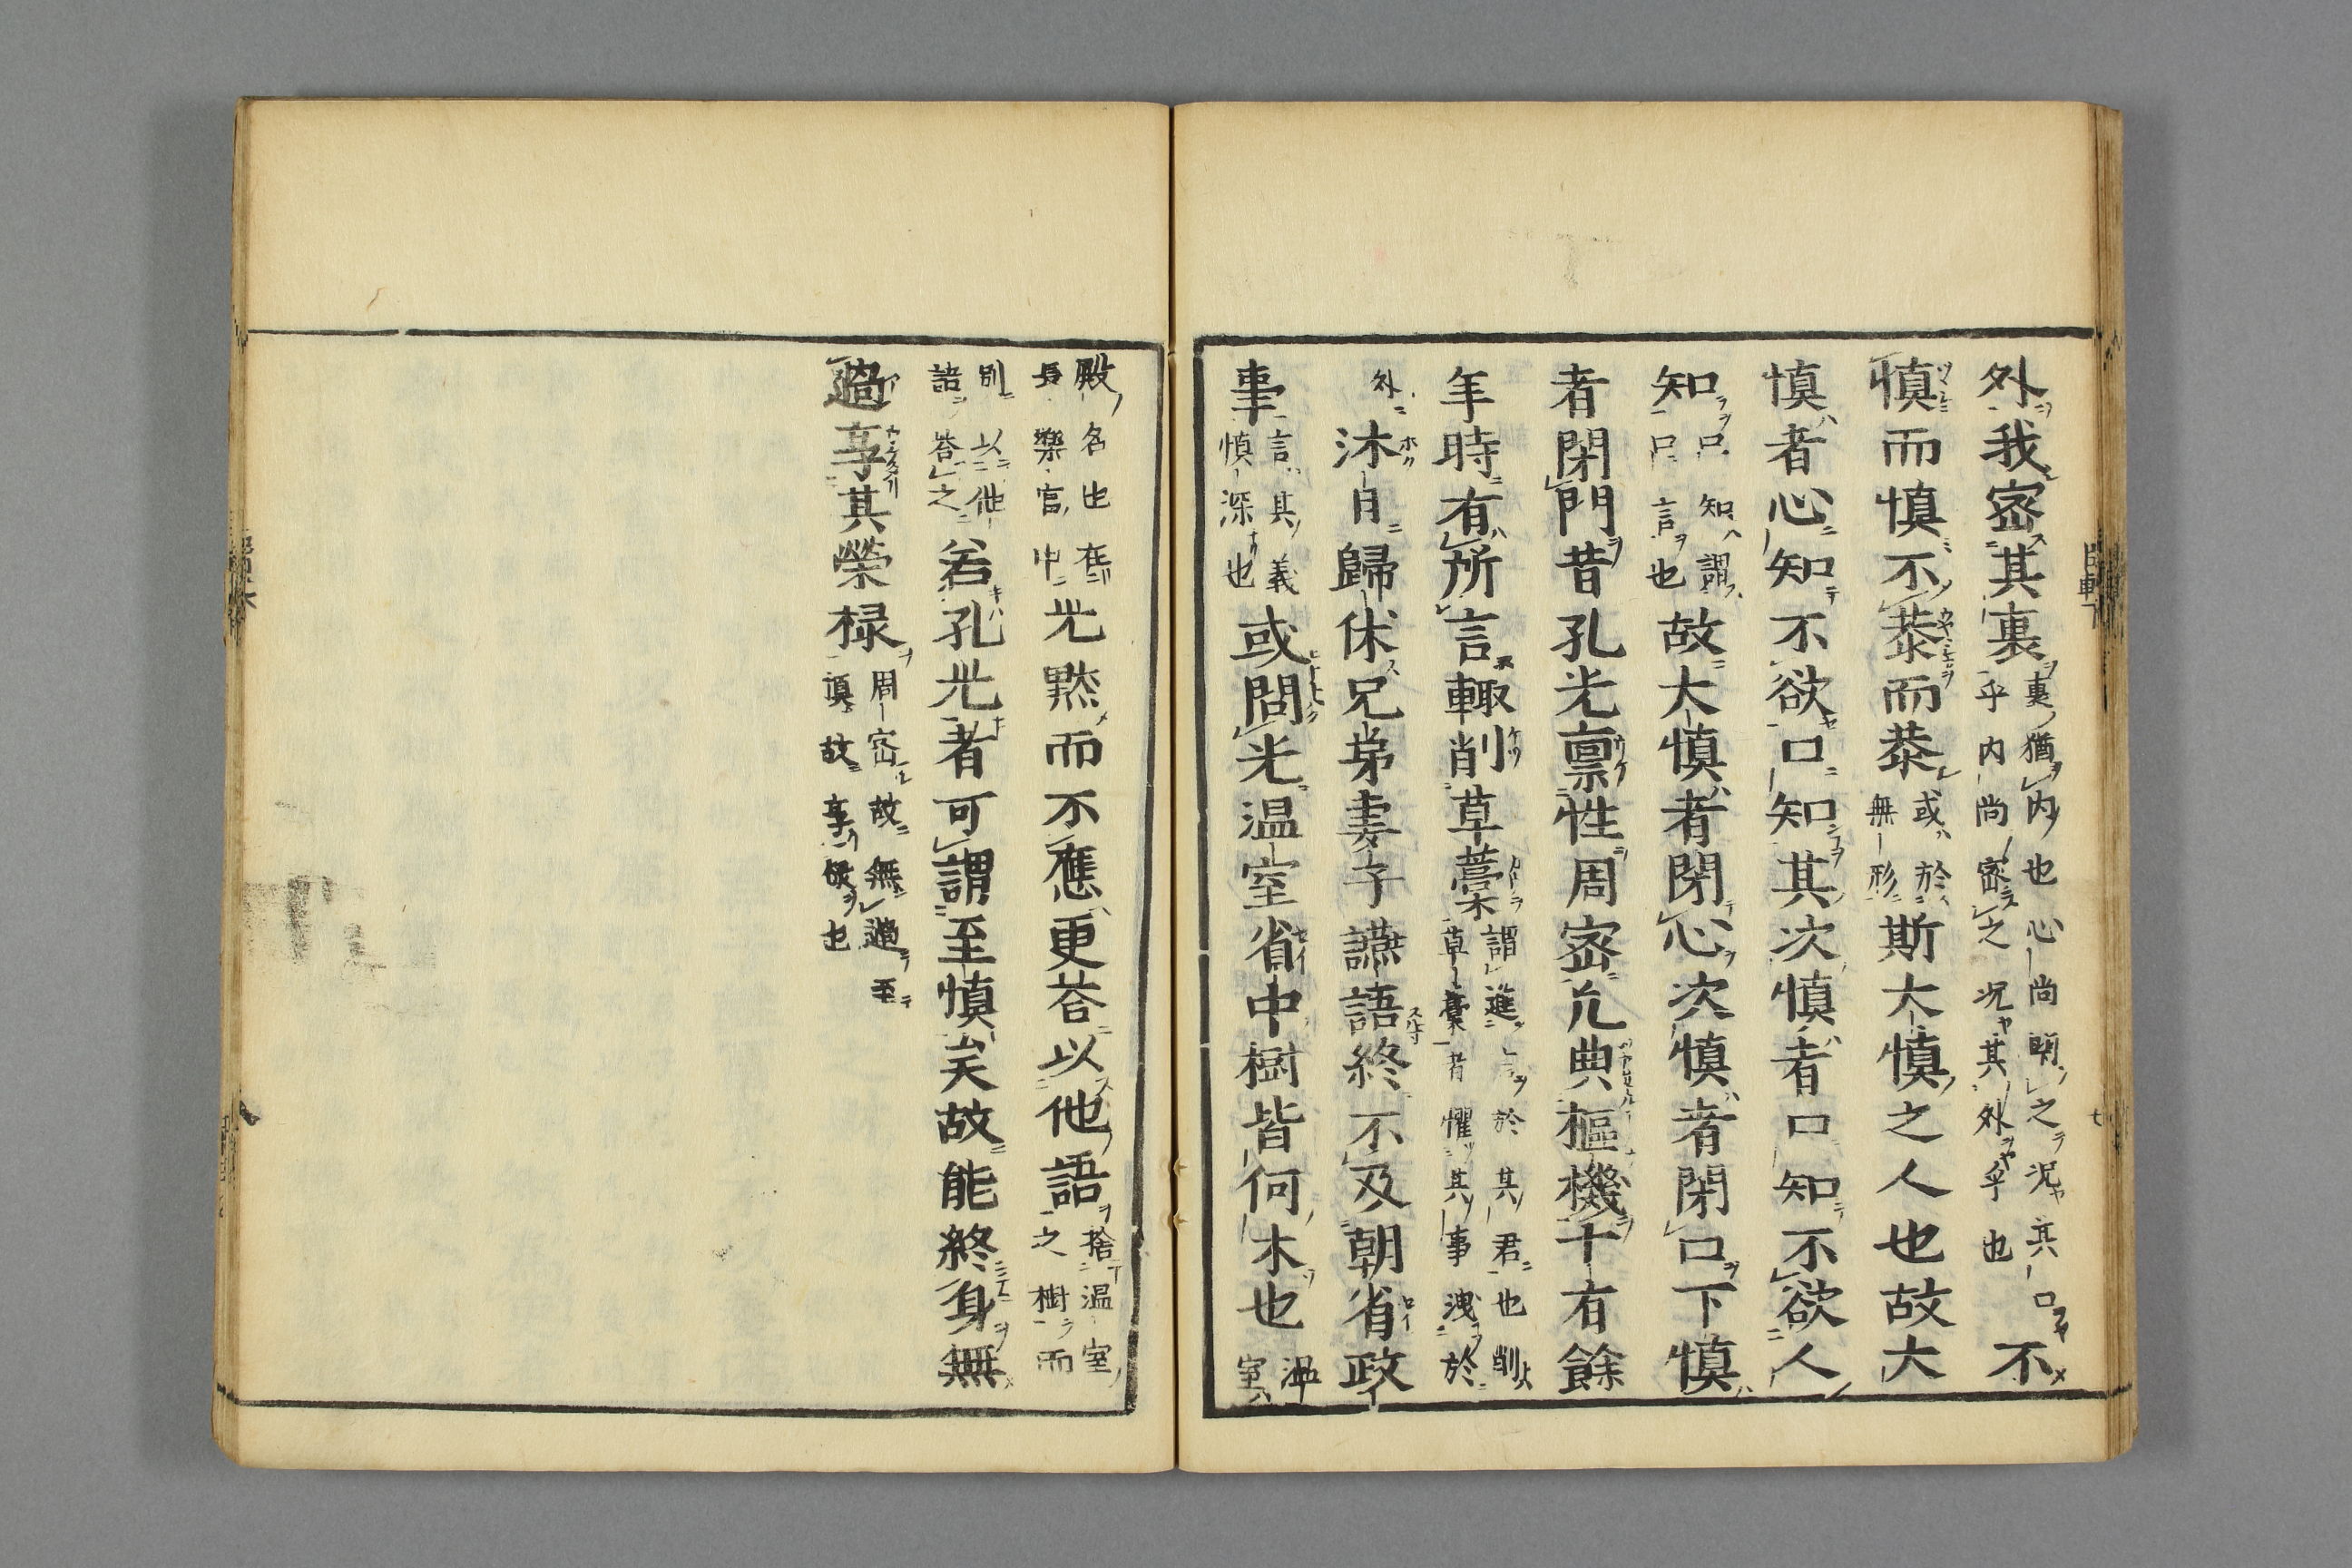 外我密其裏裏猶内也心尚之況其口乎内尚密之况其外乎也不
慎而慎不恭而恭或於無形斯大慎之人也故大
慎者心知不欲口知其次慎者口知不欲人
知口知謂口言也故大慎者閉心次慎者閉口下慎
者閉門昔孔光禀性周密凢典樞機十有餘
年時有所言輙削草藁謂進言於其君也削草藁者懼其事洩於
外沐日歸休兄弟妻子讌語終不及朝省政
事言其義慎深也或問光温室省中樹皆何木也温室
殿名也在長樂宮中光黙而不應更荅以他語捨温室之樹而
別以他語荅之若孔光者可謂至慎矣故能終身無
過享其榮禄周密故無過至慎故享禄也